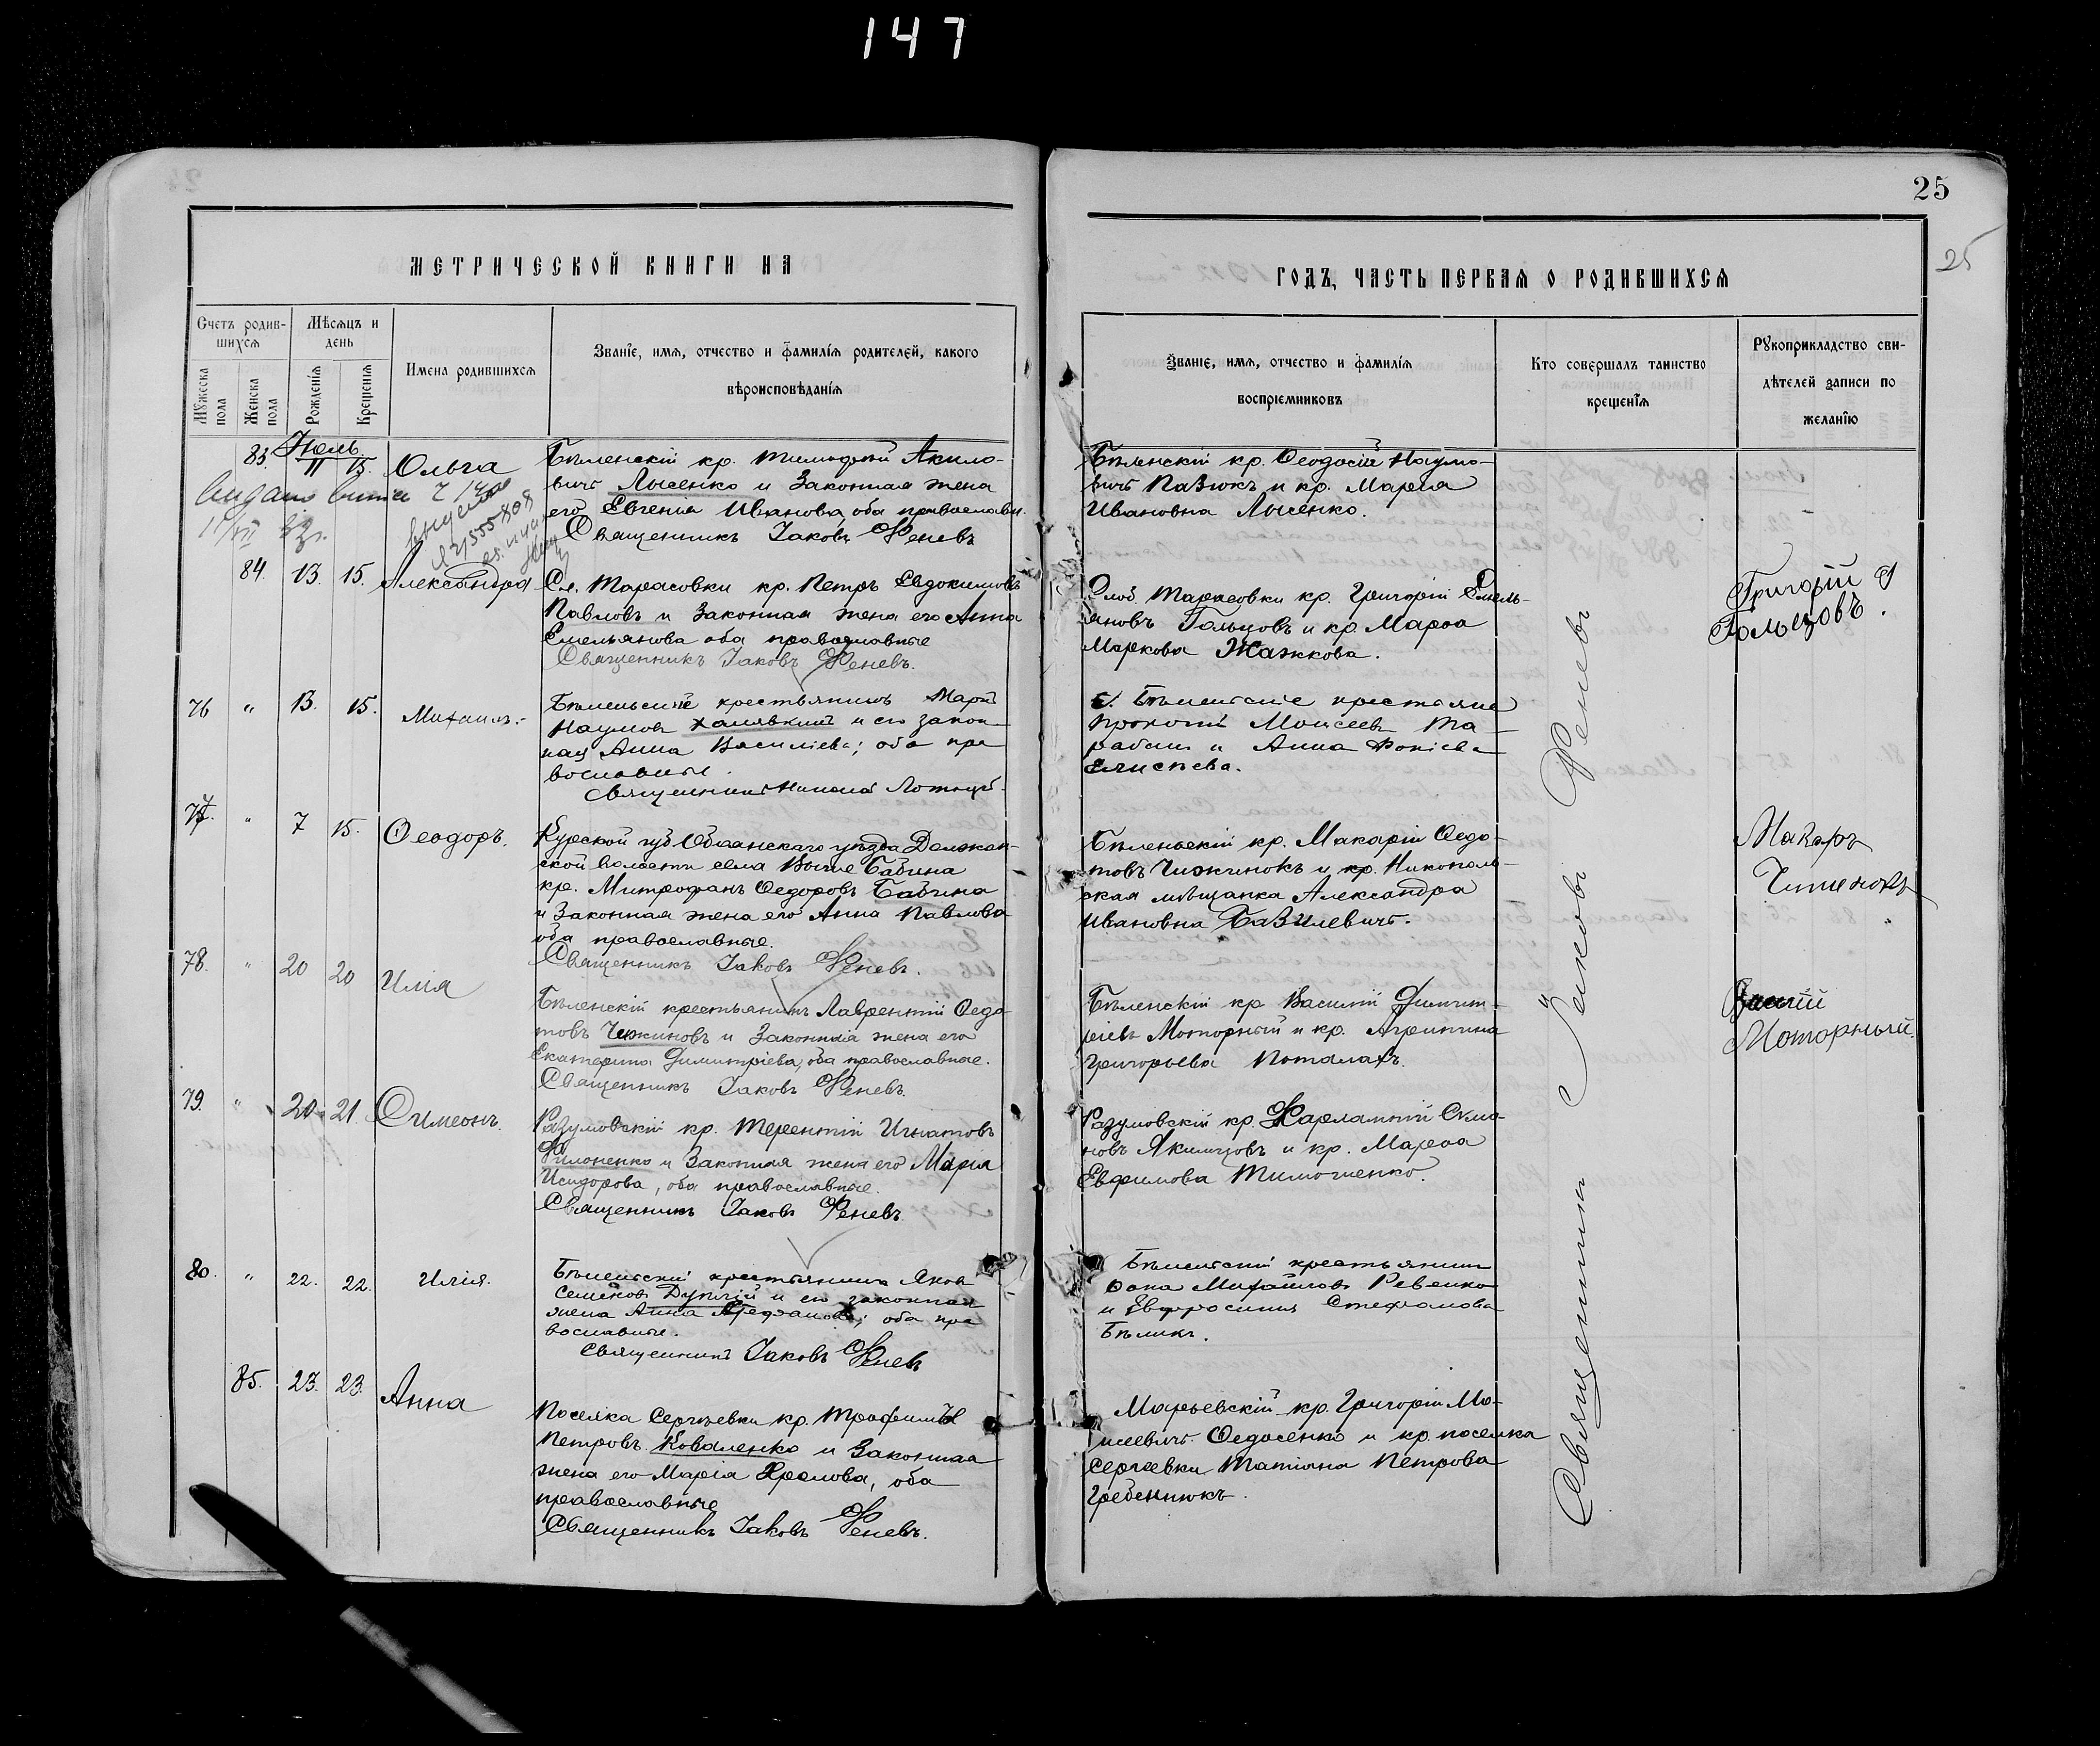 147
25
25
МЕТРИЧЕСКОЙ КНИГИ НА
ГОДЪ, ЧАСТЬ ПЕРВАЯ О РОДИВШИХСЯ
Счетъ родив-
шихся
Мѣсяцъ и
день
Мужеска пола
Женска пола
Рожденія
Крещенія
Имена родившихся
Званіе, имя, отчество и фамилія родителей, какого
вѣроисповѣданія
Званіе, имя, отчество и фамилія
воспріемниковъ
Кто совершалъ таинство
крещенія
Рукоприкладство сви-
дѣтелей записи по
желанію
Іюль
83. 11 15. Ольга
Бѣленскій кр. Тимофей Акило-
вичъ Лысенко и законная жена
его Евгенія Иванова, оба православн.
Священникъ Іаковъ Феневъ
Бѣленскій кр. Ѳеодосій Наумо-
вичъ Пазюкъ и кр. Марѳа
Ивановна Лысенко.
84. 13. 15. Александра
Сл. Тарасовки кр. Петръ Евдокимовъ
Павловъ и законная жена его Анна
Емельянова оба православные
Священникъ Іаковъ Феневъ.
Слоб. Тарасовки кр. Григорій Емель-
яновъ Гольцовъ и кр. Марѳа
Маркова Жажкова.
Григорій
Гольцовъ.
76 " 13. 15. Михаилъ.
Бѣленьскіе крестьянинъ Марѳ
Наумовъ Халявкинъ и его закон-
ная Анна Василіева; оба пра
вославные.
Священникъ Николай
Бѣленскіе крестьяне
Прокопій Моисеевъ Та-
ранъ и Анна Фокіева
Елисѣева.
77. " 7 15. Ѳеодоръ.
Курской губ Обоянскаго уѣзда Должен-
ской волости села Бабина
кр. Митрофанъ Ѳедоровъ Бабина
и законная жена его Анна Павлова
оба православные.
Священникъ Іаковъ Феневъ.
Бѣленьскій кр. Макарій Ѳедо-
товъ Чижинокъ и кр. Никополь-
ская мѣщанка Александра
Ивановна Базилевичъ.
Макаръ
78. " 20 20 Илія
Бѣленскій крестьянинъ Лаврентій Ѳедо
товъ Чижиновъ и законная жена его
Екатерина Димитріева, оба православные.
Священникъ Іаковъ Феневъ.
Бѣленскій кр Василій Димит-
ріевъ Моторный и кр. Агрипина
Григорьева Поталахъ.
Моторный.
79. " 20 21 Симеонъ.
Разумовскій кр. Терентій Игнатовъ
Филоненко и законная жена его Марія
Исидорова, оба православные.
Священникъ Іаковъ Феневъ
Разумовскій кр. Харлампій Симо-
новъ Якимцовъ и кр. Марѳа
Евфимова Тимошенко.
80. " 22. 22. Илія.
Бѣленскій крестьянинъ Яковъ
Семеновъ Дуплій и его законная
жена Анна; оба пра
вославные.
Священникъ Іаковъ Феневъ
Бѣленскій крестьянинъ
Ѳома Михайловъ Ревенко
и Евфросинія Стефанова
Бѣликъ.
85. 23. 23. Анна
Поселка Сергѣевки кр. Трофимъ
Петровъ Коваленко и законная
жена его Марія Фролова, оба
православные
Священникъ Іаковъ Феневъ.
Марьевскій кр. Григорій Мо-
исеевичъ Ѳедосенко и кр. поселка
Сергѣевки Татіана Петрова
Гребенюкъ.
Священникъ Іаковъ Феневъ